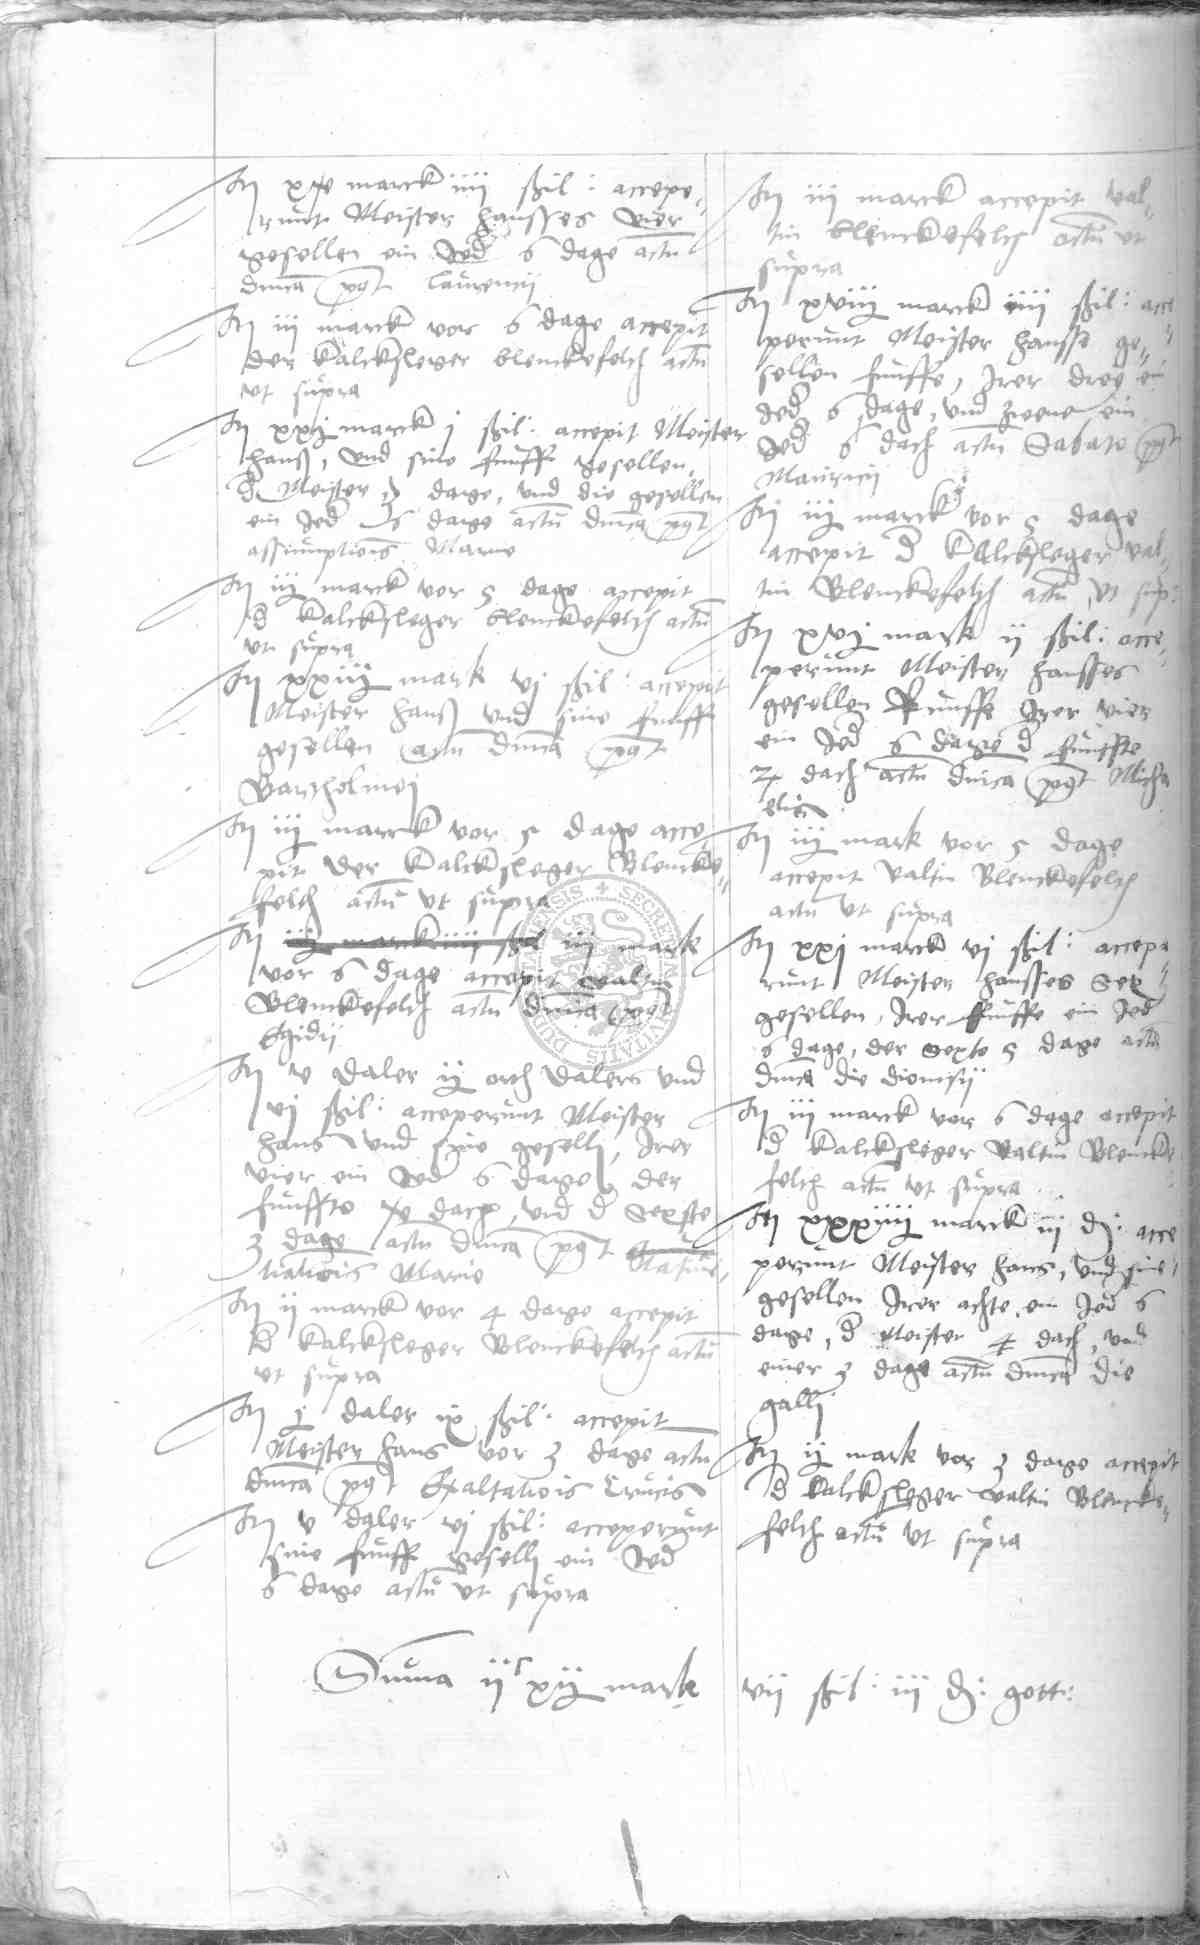 It xv marck iiii ßil: accepe-
runt Meister Hanßes vier
gesellen ein Jed 6 dage actu
dnica pgt Laurencij
It iii marck vor 6 dage accepit
der kalcksleger blenckefelch actu
vt supra
It xxij marck j ßil: accepit Meister
Hanß, vnd sine funff gesellen,
d Meister 3 dage, vnd die gesellen
ein Jed 6 dage actu dnica pgt
assumptiois Marie
It iij marck vor 5 dage accepit
d kalcksleger blenckefelch actu
vt supra
It xxiiij mark vj ßil: accepit
Meister Hanß vnd sine funff
gesellen actu dnica pgt
Bartholmej
It iij marck vor 5 dage acce-
pit der kalcksleger Blencke-
felch actu vt supra
It iij marck iiii ßil iii mark
vor 6 dage accepit valtin
Blenckefelch actu dnica pgt
Egidij
It v daler ij orth dalers vnd
vj ßil: acceperunt Meister
Hans vnd sine gesell, Irer
vier ein Jed 6 dage, der
funffte dach, vnd d Sexste
3 dage actu dnica pgt
Natiuitatiois Marie
It ij marck vor 4 dage accepit
d kalcksleger Blenckefelch actu
vt supra
It j daler ix ßil: accepit
Meister Hans vor 3 dage actu
dnica pgt Exaltatiois Crucis
It v daler vj ßil: acceperunt
sine funff gesell ein Jed
6 dage actu vt supra
It iii marck accepit val-
tin blenckefelch actu vt
supra
It xviij marck iiii ßil: acce
perunt Meister Hansse ge-
sellen funffe, Irer dree ein
Jed 6 dage, vnd zweene ein
Jed 6 dach actu Sabato pgt
Mauricij
It iij marck vor 5 dage
accepit d kalcksleger val-
tin Blenckefelch actu vt sup:
It xvj mark ij ßil: acce-
perunt Meister Hansses
gesellen funffe Irer vier
ein Jed 6 dage d funffte
dach actu dnica pgt Micha
elis
It iij mark vor 5 dage
accepit valtin Blenckefelch
actu vt supra
It xxj marck vj ßil: accepe
runt Meister Hansses Sex
gesellen, Irer funffe ein Jed
6 dage, der Sexte 5 dage actu
dnica die dionisij
It iii marck vor 6 dage accepit
d kalcksleger Valtin Blencke
felch actu vt supra
It xxxiiij marck iii d: acce
perunt Meister Hans, vnd sine
gesellen Irer achte ein Jed 6
dage, d Meister 4 dach, vnd
einer 3 dage actu dnica die
galli
It ij mark vor 3 dage accepit
d kalcksleger valtin Blencke-
felch actu vt supra
Suma ijc xij mark vii ßil: iii d: gott: